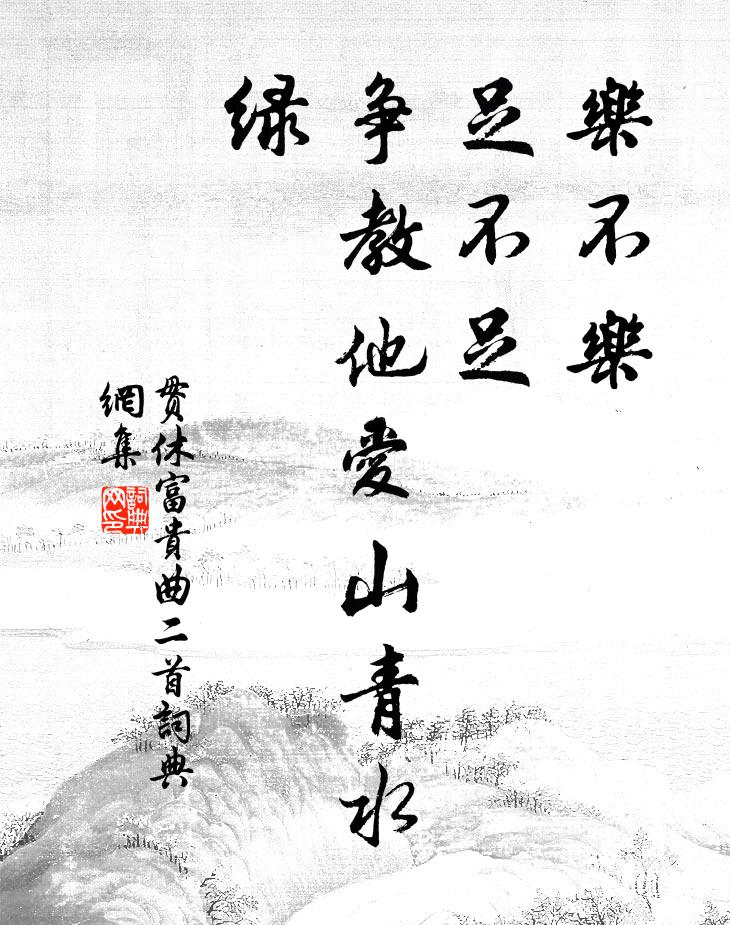 樂不樂
足不足
争教他愛山青水
綠
貫休富貴曲二首詞典
網集
詞典
网印